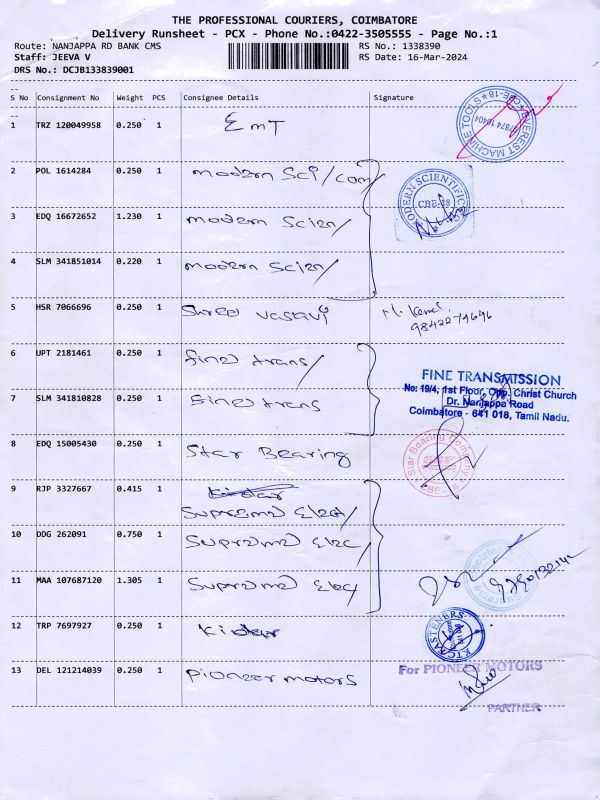 THE PROFESSIONAL COURIERS, COIMBATORE
Delivery Runsheet - PCX - Phone No.:0422-3505555 - Page No.:1
Route: NANJAPPA RD BANK CMS
RS No.: 1338390
Staff: JEEVA V
RS Date: 16-Mar-2024
DRS No.: DCJB133839001
S No Consignment No Weight PCS Consignee Details Signature
1 TRZ 120049958 0.250 1 EMT
EVEREST MACHINE TOOLS CBE-18
2 POL 1614284 0.250 1 modern Sci/com/
MODERN SCIENTIFIC
CBE-18
3 EDQ 16672652 1.230 1 modern Scien/
4 SLM 341851014 0.220 1 modern Scien/
5 HSR 7066696 0.250 1 Shree vasavi
6 UPT 2181461 0.250 1 fine trans/
FINE TRANSMISSION
No: 19/4, 1st Floor, Opp. Christ Church
Dr. Nanjappa Road
Coimbatore - 641 018, Tamil Nadu.
7 SLM 341810828 0.250 1 fine trans
8 EDQ 15005430 0.250 1 Star Bearing
Star Bearing Company
9 RJP 3327667 0.415 1 Supreme Elect/
10 DDG 262091 0.750 1 Supreme Elec/
11 MAA 107687120 1.305 1 Supreme Elect
12 TRP 7697927 0.250 1 Kidar
KTC FASTENERS
13 DEL 121214039 0.250 1 pioneer motors
For PIONEER MOTORS
PARTNER